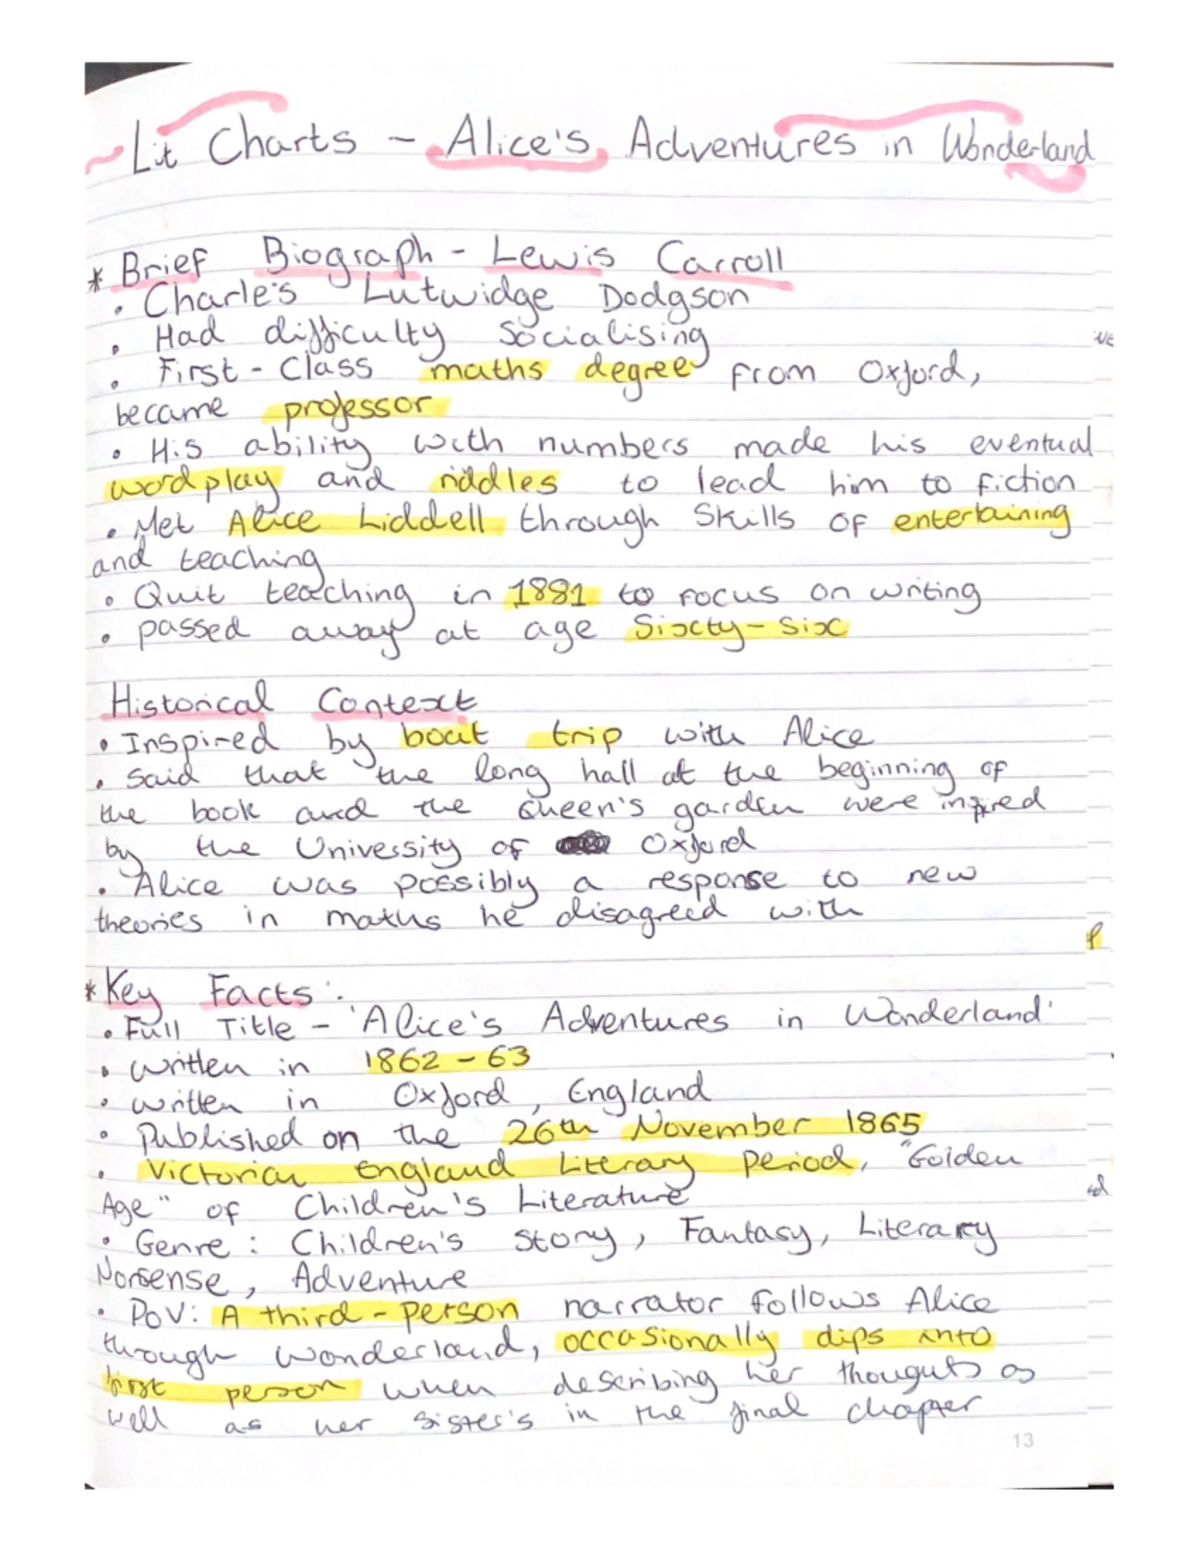 Lit Charts - Alice's Adventures in Wonderland
* Brief Biograph - Lewis Carroll
• Charle's Lutwidge Dodgson
• Had difficulty Socialising
• First-Class maths degree from Oxford,
became professor
• His ability with numbers made his eventual
wordplay and riddles to lead him to fiction
• Met Alice Liddell through Skills of entertaining
and teaching
• Quit teaching in 1881 to focus on writing
• passed away at age Sixty-Six
Historical Context
• Inspired by boat trip with Alice
• Said that the long hall at the beginning of
the book and the Queen's garden were inspired
by the University of Oxford
• Alice was possibly a response to new
theories in maths he disagreed with
* Key Facts:
• Full Title - 'Alice's Adventures in Wonderland'
• written in 1862-63
• written in Oxford, England
• Published on the 26th November 1865
• Victorian England Literary Period, "Golden
Age" of Children's Literature
• Genre: Children's Story, Fantasy, Literary
Nonsense, Adventure
• PoV: A third-person narrator follows Alice
through Wonderland, occasionally dips into
first person when describing her thoughts as
well as her sister's in the final chapter
13